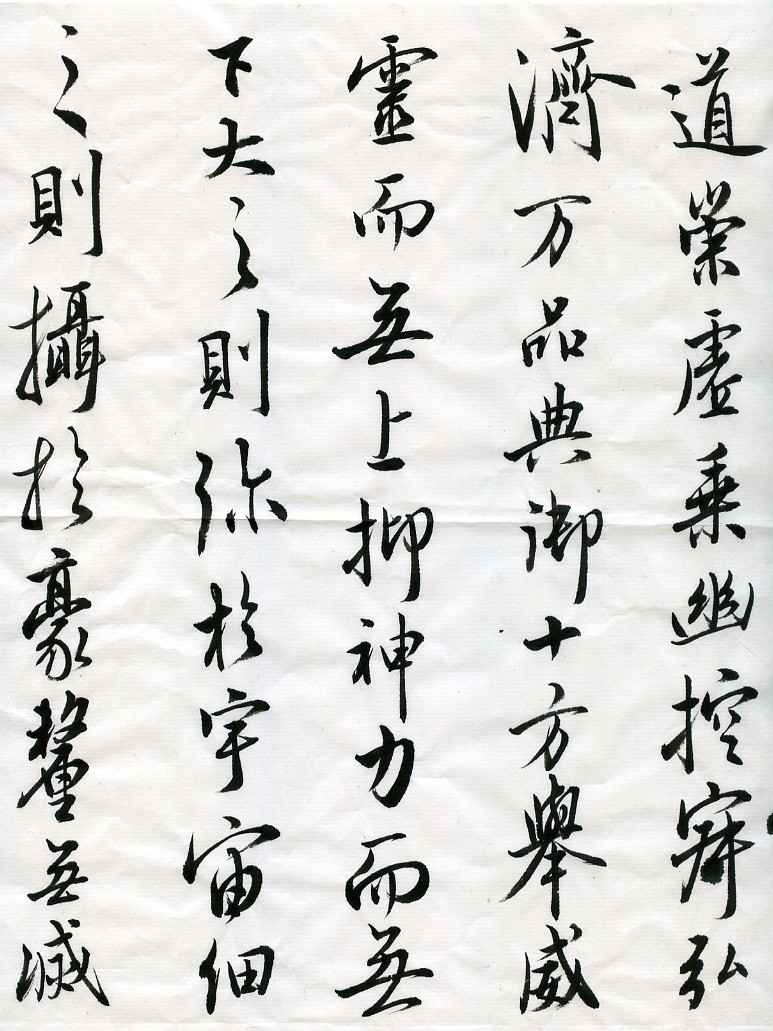 道崇虛乘幽控寂弘
濟万品典御十方舉威
靈而無上抑神力而無
下大之則弥於宇宙細
之則攝於豪釐無滅